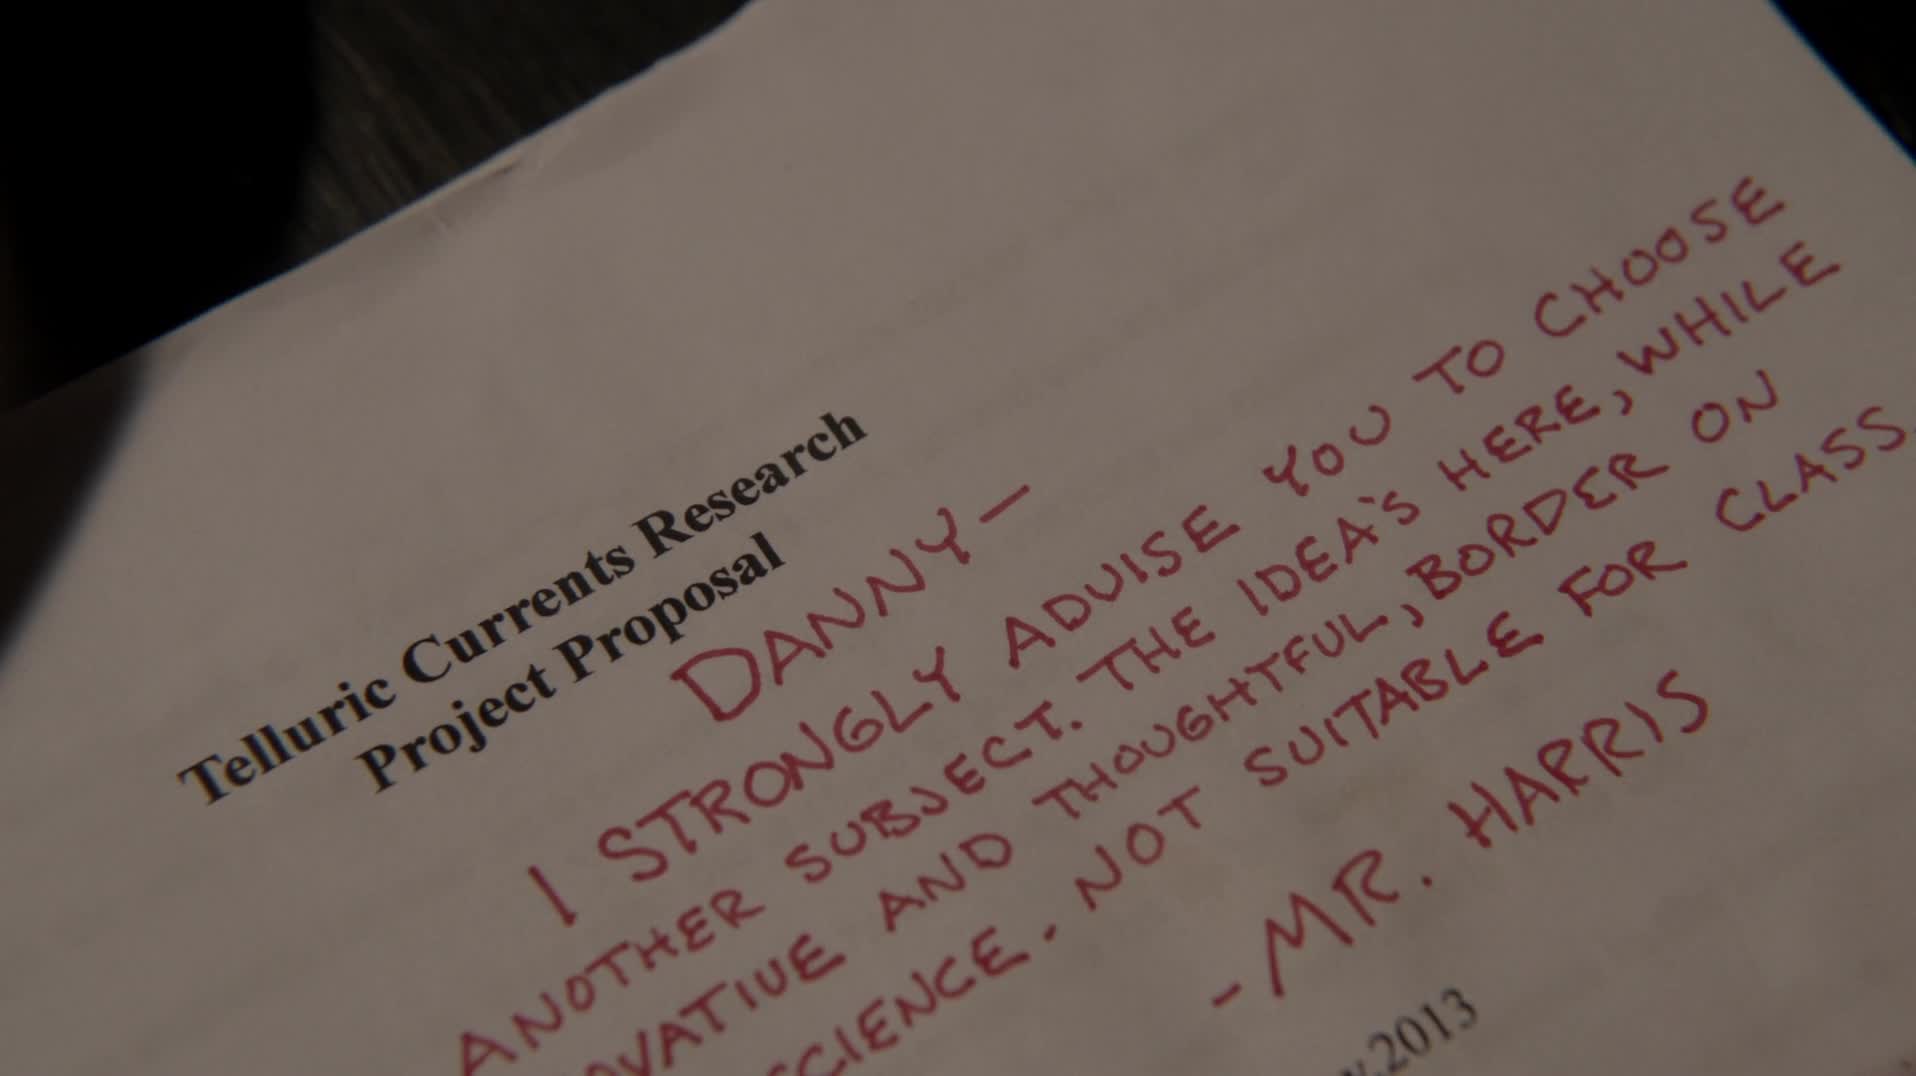 Telluric Currents Research
Project Proposal
DANNY—
I STRONGLY ADVISE YOU TO CHOOSE
ANOTHER SUBJECT. THE IDEA'S HERE, WHILE
AND THOUGHTFUL, BORDER ON
NOT SUITABLE FOR CLASS.
-MR. HARRIS
2013